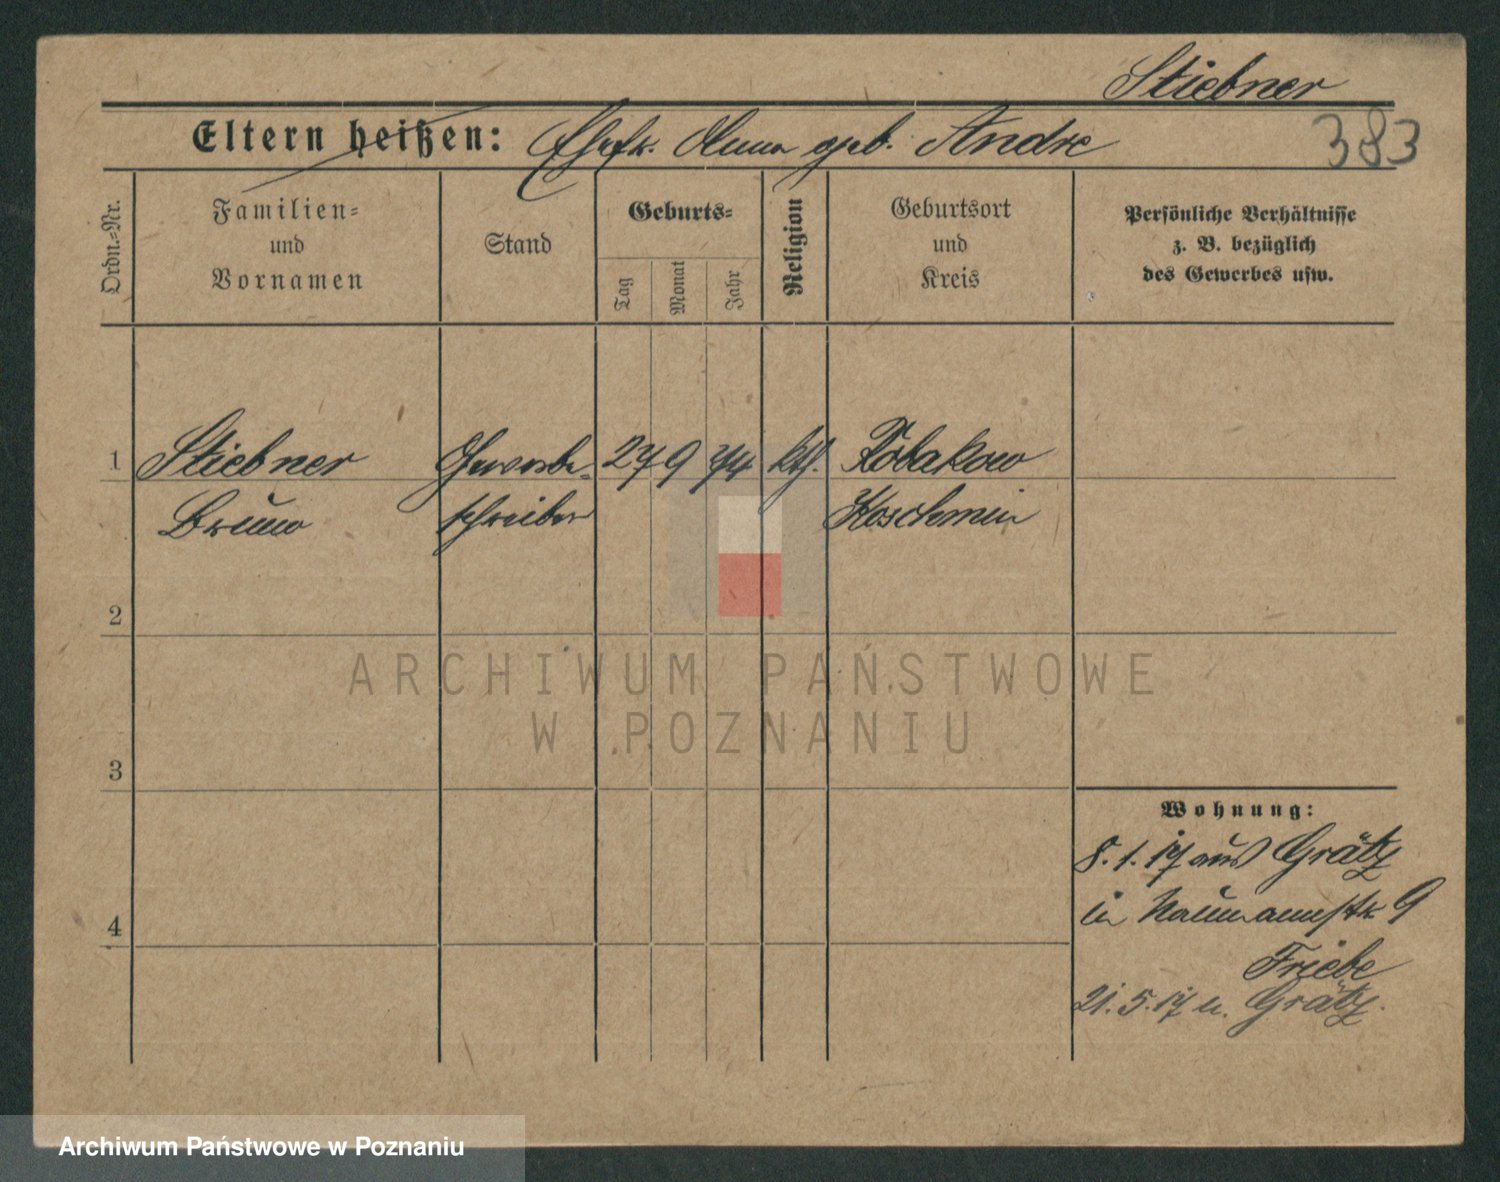 Stiebner
Eltern heißen: Ehefr. Anna geb. Andre
383
Ordn.=Nr.
Familien=
und
Vornamen
Stand
Geburts=
Tag
Monat
Jahr
Religion
Geburtsort
und
Kreis
Persönliche Verhältnisse
z. B. bezüglich
des Gewerbes usw.
1 Stiebner Gewerbe- 27 9 74 kth. Kobakow
Bruno schreiber Koschmin
2
3
4
Wohnung:
8.1.17 aus Grätz
in Naumannstr 9
Friebe
21.5.17 n. Grätz.
ARCHIWUM PAŃSTWOWE
W POZNANIU
Archiwum Państwowe w Poznaniu